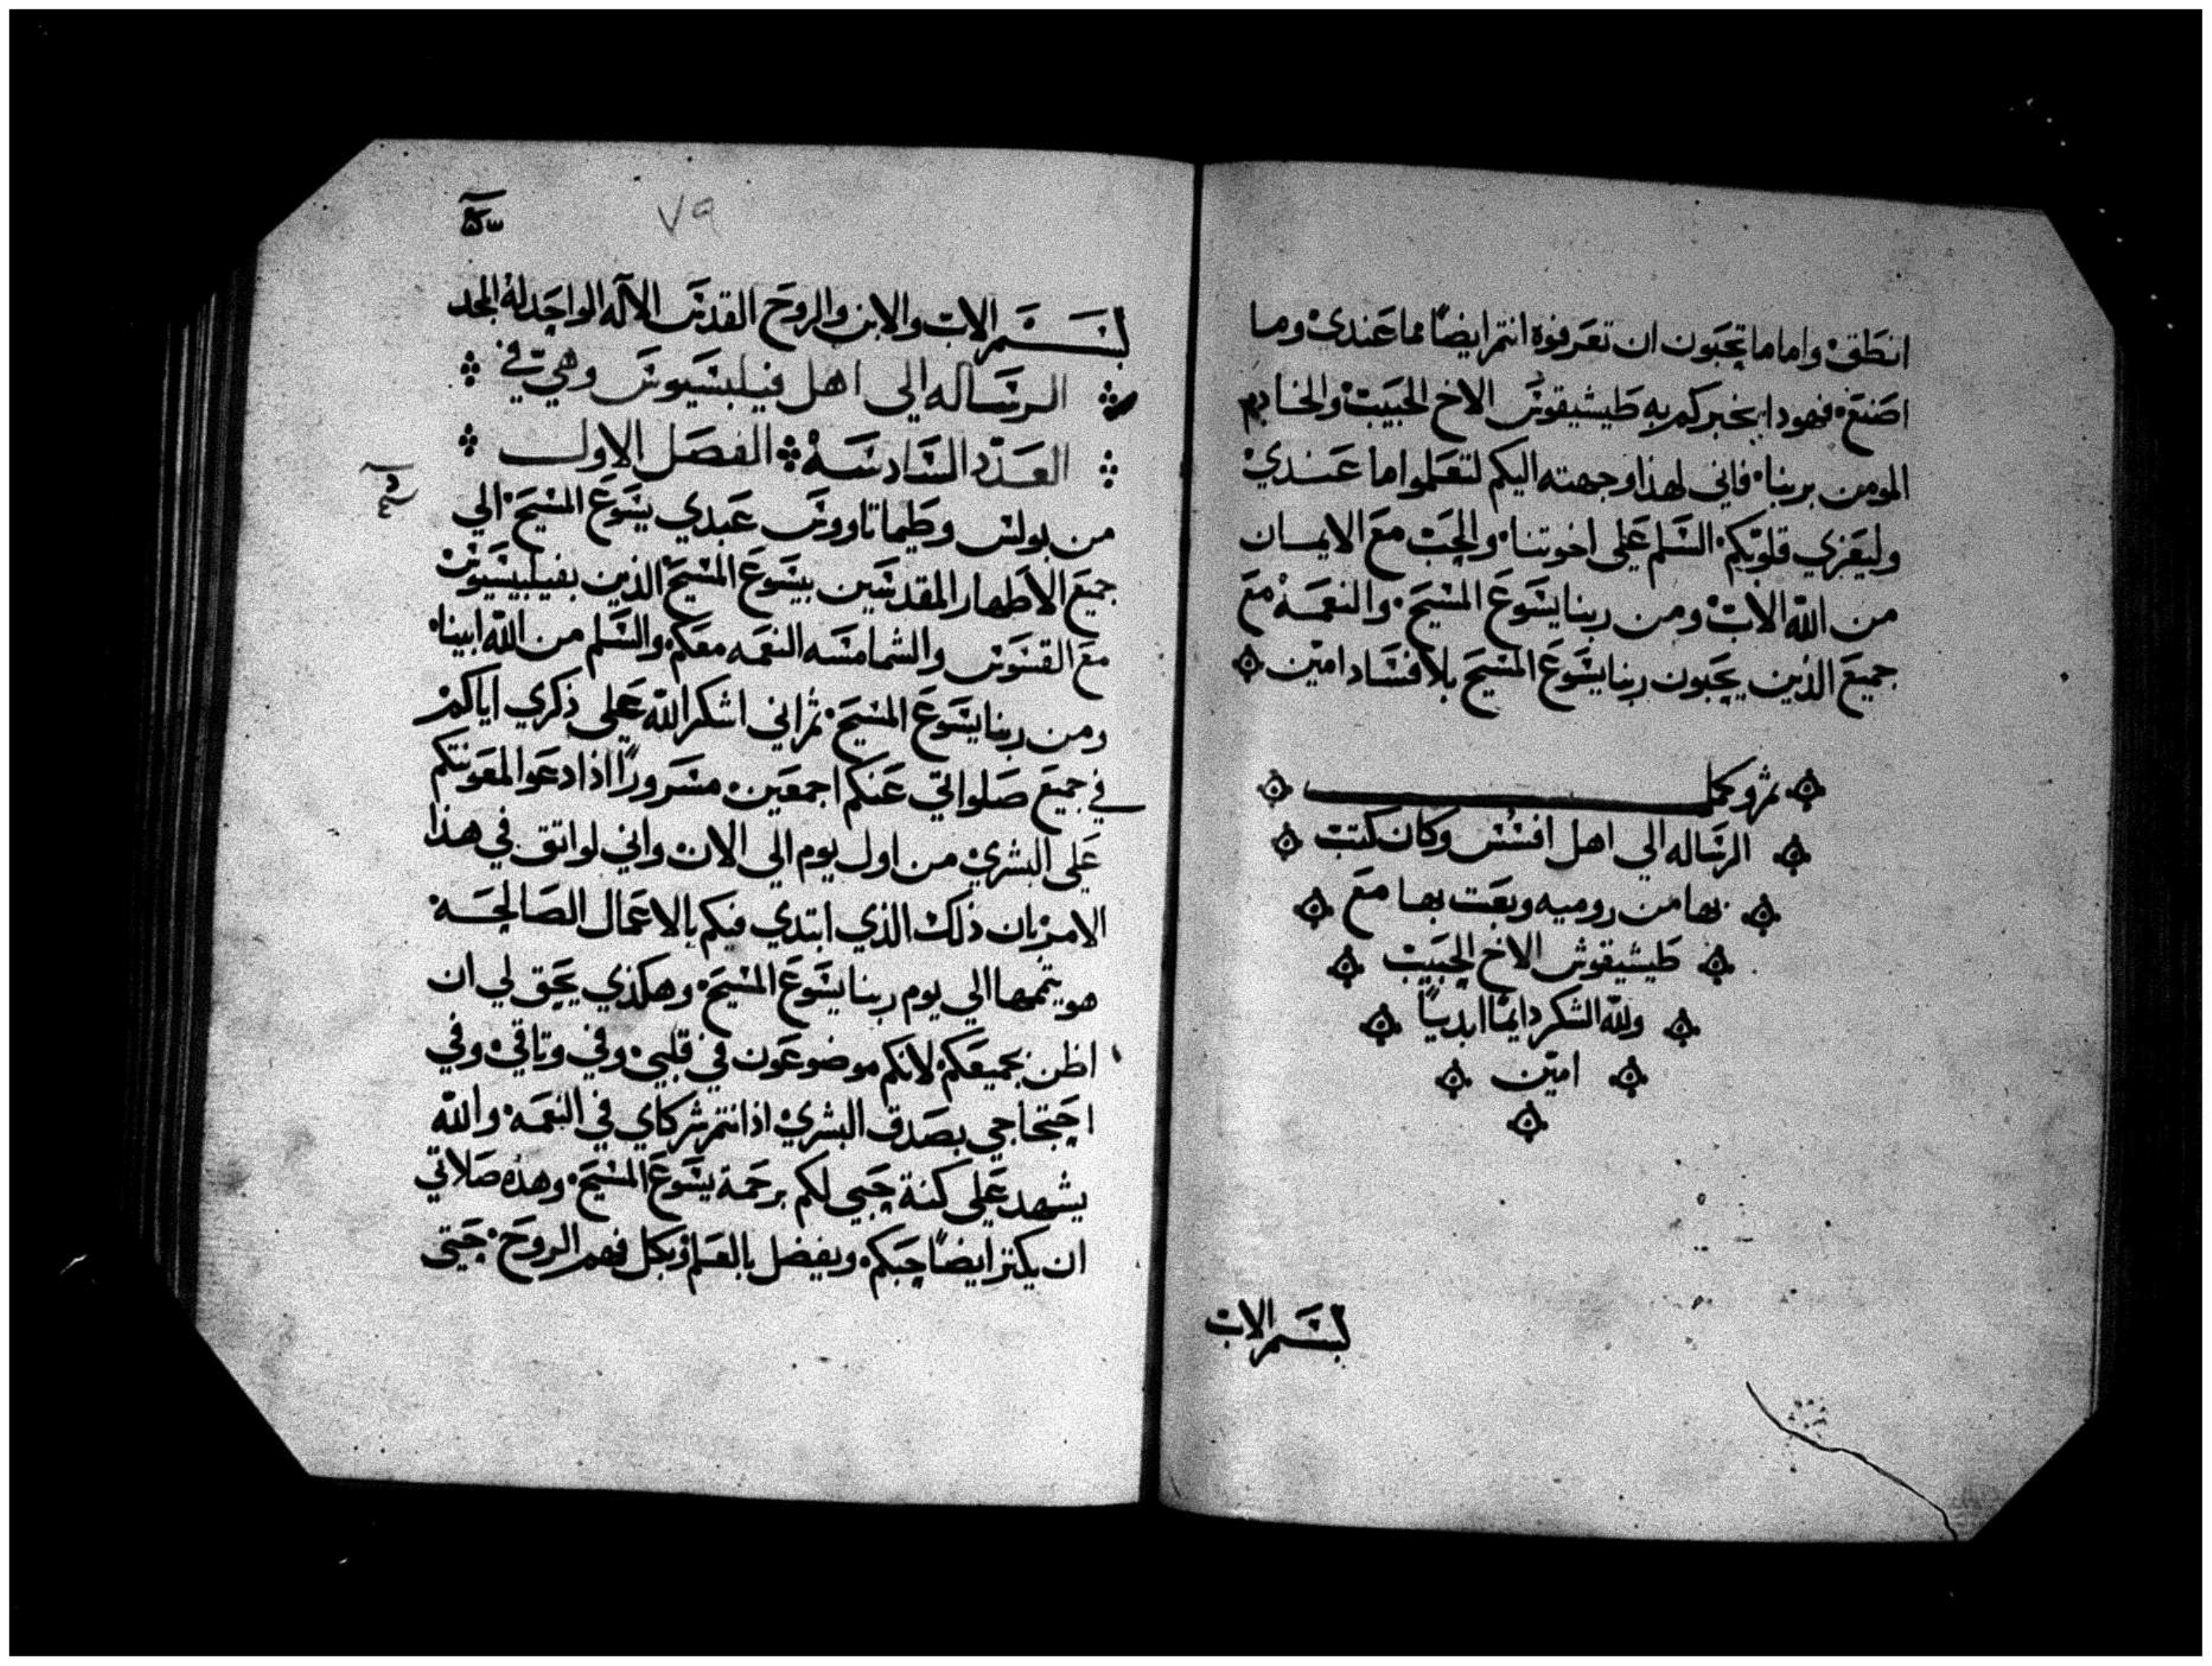 انطق واما ما تحبون ان تعرفوه انتم ايضًا مما عندي وما
اصنع فهودا يخبركم به طيشيقوس الاخ الحبيب والخادم
المومن بربنا فاني لهذا وجهته اليكم لتعلموا ما عندي
وليعزي قلوبكم السلم على اخوتنا والحب مع الايمان
من الله الاب ومن ربنا يسوع المسيح والنعمه مع
جميع الذين يحبون ربنا يسوع المسيح بلا فساد امين
ثم وكمل
الرساله الي اهل افسس وكان كتب
بها من روميه وبعت بها مع
طيشيقوس الاخ الحبيب
ولله الشكر دايمًا ابديًا
امين
بسم الاب
٧٩
بسم الاب والابن والروح القدس الاله الواحد له المجد
الرساله الي اهل فيلبسيوس وهي في
العدد السادسه الفصل الاول
من بولس وطيماتاووس عبدي يسوع المسيح الي
جميع الاطهار المقدسين بيسوع المسيح الذين بفيلبيسيوس
مع القسوس والشمامسه النعمه معكم والسلم من الله ابينا
ومن ربنا يسوع المسيح ثم اني اشكر الله على ذكري اياكم
في جميع صلواتي عنكم اجمعين مسرورًا اذا دعوا لمعونتكم
على البشري من اول يوم الي الان واني لواتق في هذا
الامر بان ذلك الذي ابتدي فيكم بالاعمال الصالحه
هو يتممها الي يوم ربنا يسوع المسيح وهكذي يحق لي ان
اظن بجميعكم لانكم موضوعون في قلبي وفي وتاقي وفي
احتجاجي بصدق البشري اذ انتم شركاي في النعمه والله
يشهد على كنة حبي لكم برحمة يسوع المسيح وهذه صلاتي
ان يكتر ايضًا حبكم ويفضل بالعلم وبكل فهم الروح حتى